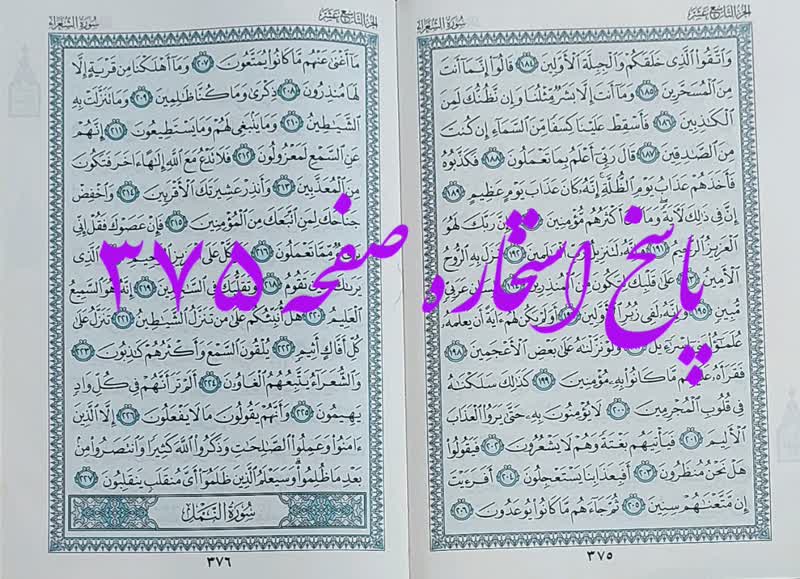 الجزء التاسع عشر
سورة الشعراء
وَاتَّقُوا الَّذِي خَلَقَكُمْ وَالْجِبِلَّةَ الْأَوَّلِينَ ١٨٤ قَالُوا إِنَّمَا أَنتَ
مِنَ الْمُسَحَّرِينَ ١٨٥ وَمَا أَنتَ إِلَّا بَشَرٌ مِّثْلُنَا وَإِن نَّظُنُّكَ لَمِنَ
الْكَاذِبِينَ ١٨٦ فَأَسْقِطْ عَلَيْنَا كِسَفًا مِّنَ السَّمَاءِ إِن كُنتَ
مِنَ الصَّادِقِينَ ١٨٧ قَالَ رَبِّي أَعْلَمُ بِمَا تَعْمَلُونَ ١٨٨ فَكَذَّبُوهُ
فَأَخَذَهُمْ عَذَابُ يَوْمِ الظُّلَّةِ إِنَّهُ كَانَ عَذَابَ يَوْمٍ عَظِيمٍ ١٨٩
إِنَّ فِي ذَلِكَ لَآيَةً وَمَا أَكْثَرُهُم مُّؤْمِنِينَ رَبَّكَ لَهُوَ
الْعَزِيزُ ١٩١ رَبِّ ١٩٢ نَزَلَ بِهِ الرُّوحُ
الْأَمِينُ عَلَى قَلْبِكَ لِتَكُونَ مِنَ الْمُنذِرِينَ عَرَبِيٍّ
مُّبِينٍ ١٩٥ لَفِي زُبُرِ أَوَلَمْ يَكُن لَّهُمْ آيَةً أَن يَعْلَمَهُ
عُلَمَاءُ وَلَوْ نَزَّلْنَاهُ عَلَى بَعْضِ الْأَعْجَمِينَ ١٩٨
فَقَرَأَهُ عَلَيْهِم مَّا كَانُوا بِهِ مُؤْمِنِينَ ١٩٩ كَذَلِكَ سَلَكْنَاهُ
فِي قُلُوبِ الْمُجْرِمِينَ ٢٠٠ لَا يُؤْمِنُونَ بِهِ حَتَّى يَرَوُا الْعَذَابَ
الْأَلِيمَ ٢٠١ فَيَأْتِيَهُم بَغْتَةً وَهُمْ لَا يَشْعُرُونَ ٢٠٢ فَيَقُولُوا
هَلْ نَحْنُ مُنظَرُونَ ٢٠٣ أَفَبِعَذَابِنَا يَسْتَعْجِلُونَ ٢٠٤ أَفَرَأَيْتَ
إِن مَّتَّعْنَاهُمْ سِنِينَ ٢٠٥ ثُمَّ جَاءَهُم مَّا كَانُوا يُوعَدُونَ ٢٠٦
٣٧٥
الجزء التاسع عشر
سورة الشعراء
مَا أَغْنَى عَنْهُم مَّا كَانُوا يُمَتَّعُونَ ٢٠٧ وَمَا أَهْلَكْنَا مِن قَرْيَةٍ إِلَّا
لَهَا مُنذِرُونَ ٢٠٨ ذِكْرَى وَمَا كُنَّا ظَالِمِينَ ٢٠٩ وَمَا تَنَزَّلَتْ بِهِ
الشَّيَاطِينُ ٢١٠ وَمَا يَنبَغِي لَهُمْ وَمَا يَسْتَطِيعُونَ ٢١١ إِنَّهُمْ
عَنِ السَّمْعِ لَمَعْزُولُونَ ٢١٢ فَلَا تَدْعُ مَعَ اللَّهِ إِلَهًا آخَرَ فَتَكُونَ
مِنَ الْمُعَذَّبِينَ ٢١٣ وَأَنذِرْ عَشِيرَتَكَ الْأَقْرَبِينَ ٢١٤ وَاخْفِضْ
جَنَاحَكَ لِمَنِ اتَّبَعَكَ مِنَ الْمُؤْمِنِينَ ٢١٥ فَإِنْ عَصَوْكَ فَقُلْ إِنِّي
مِّمَّا تَعْمَلُونَ ٢١٦ عَلَى الَّذِي
يَرَاكَ تَقُومُ ٢١٨ وَتَقَلُّبَكَ فِي ٢١٩ إِنَّهُ هُوَ السَّمِيعُ
الْعَلِيمُ ٢٢٠ هَلْ أُنَبِّئُكُمْ عَلَى مَن تَنَزَّلُ الشَّيَاطِينُ ٢٢١ تَنَزَّلُ عَلَى
كُلِّ أَفَّاكٍ أَثِيمٍ ٢٢٢ يُلْقُونَ السَّمْعَ وَأَكْثَرُهُمْ كَاذِبُونَ ٢٢٣
وَالشُّعَرَاءُ يَتَّبِعُهُمُ الْغَاوُونَ ٢٢٤ أَلَمْ تَرَ أَنَّهُمْ فِي كُلِّ وَادٍ
يَهِيمُونَ ٢٢٥ وَأَنَّهُمْ يَقُولُونَ مَا لَا يَفْعَلُونَ ٢٢٦ إِلَّا الَّذِينَ
آمَنُوا وَعَمِلُوا الصَّالِحَاتِ وَذَكَرُوا اللَّهَ كَثِيرًا وَانتَصَرُوا مِن
بَعْدِ مَا ظُلِمُوا وَسَيَعْلَمُ الَّذِينَ ظَلَمُوا أَيَّ مُنقَلَبٍ يَنقَلِبُونَ ٢٢٧
سُورَةُ النَّمْلِ
٣٧٦
پاسخ استخاره صفحه ۳۷۵